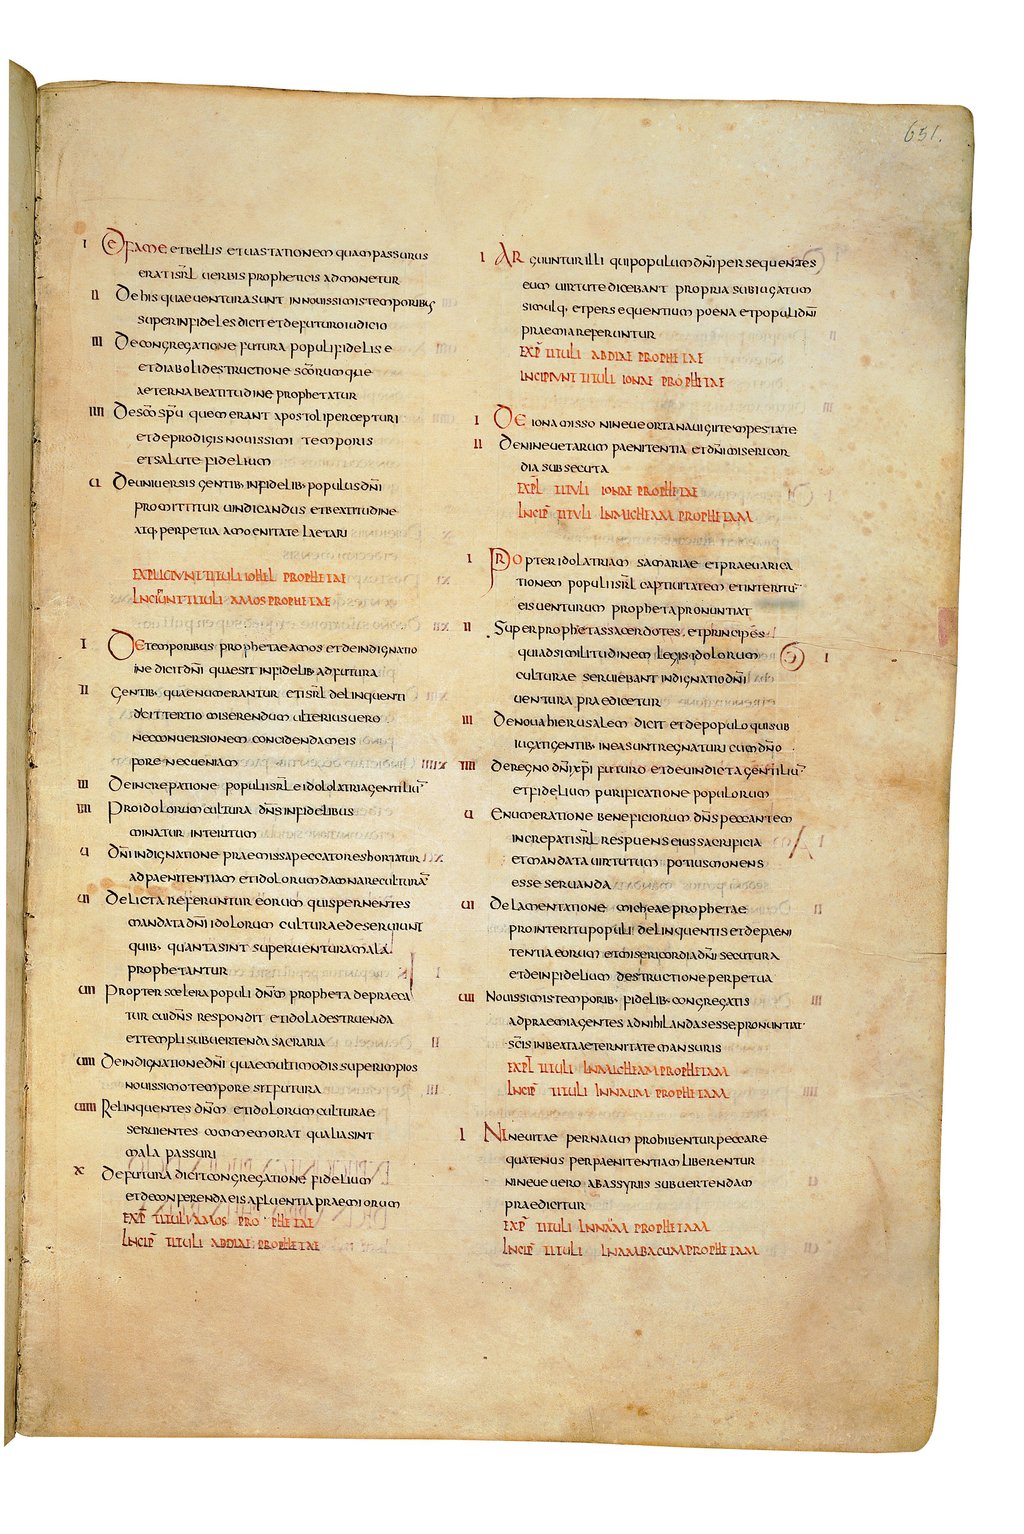 651.
I De fame et bellis et uastationem quam passurus
erat isrl uerbis propheticis admonetur
II De his quae uentura sunt in nouissimis temporibus
super infideles dicit et de futuro iudicio
III De congregatione futura populi fidelis e
et diaboli destructione scorum que
aeterna beatitudine prophetatur
IIII De sco spu quem erant apostoli percepturi
et de prodigis nouissimi temporis
et salute fidelium
U De uniuersis gentib· infidelib· populus dni
promittitur uindicandus et beatitudine
atq· perpetua amoenitate laetari
EXPLICIUNT TITULI IOHEL PROPHETAE
INCIPIUNT TITULI AMOS PROPHETAE
I De temporibus prophetae amos et de indignatio
ine dicit dni quae sit infidelib· ad futura
II Gentib· quae numerantur et isrl delinquenti
dicit tertio miserendum ulterius uero
nec conuersionem concidenda meis
pore nec ueniam
III De increpatione populi isrl e idololatria gentiliu
IIII Pro idolorum cultura dns infidelibus
minatur interitum
U Dni indignatione praemissa peccatores hortatur
ad paenitentiam et idolorum damnare cultura
UI Delicta referuntur eorum qui spernentes
mandata dni idolorum culturae deseruiunt
quib· quanta sint superuentura mala
prophetantur
UII Propter scelera populi dnm propheta depraeca
tur cui dns respondit et idola destruenda
et templi subuertenda sacraria
UIII De indignatione dni quae multimodis super impios
nouissimo tempore sit futura
UIIII Relinquentes dnm et idolorum culturae
seruientes commemorat qualia sint
mala passuri
X De futura dicit congregatione fidelium
et de conferenda eis afluentia praemiorum
EXP TITULI AMOS PROPHETAE
INCIP TITULI ABDIAE PROPHETAE
I Arguuntur illi qui populum dni persequentes
eum uirtute dicebant propria subiugatum
simulq· et persequentium poena et populi dni
praemia referuntur
EXP TITULI ABDIAE PROPHETAE
INCIPIUNT TITULI IONAE PROPHETAE
I De iona misso nineue orta naui gitempestate
II De nineuetarum paenitentia et dni misericor
dia subsecuta
EXPL TITULI IONAE PROPHETAE
INCIP TITULI IN MICHEAM PROPHETAM
I Propter idolatriam samariae et praeuarica
tionem populi isrl captiuitatem et interitu
eis uenturum propheta pronuntiat
II Super prophetas sacerdotes et principes
qui ad similitudinem legis idolorum
culturae seruiebant indignatio dni
uentura praedicetur
III De noua hierusalem dicit et de populo qui sub
iugati gentib· in ea sunt regnaturi cum dno
IIII De regno dni xpi futuro et de uindicta gentiliu
et fidelium purificatione populorum
U Enumeratione beneficiorum dns peccantem
increpat isrl respuens eius sacrificia
et mandata uirtutum potius monens
esse seruanda
UI De lamentatione micheae prophetae
pro interitu populi delinquentis et de paeni
tentia eorum et misericordia dni secutura
et de infidelium destructione perpetua
UII Nouissimis temporib· fidelib· congregatis
ad praemia gentes ad nihilandas esse pronuntiat·
scis in beata aeternitate mansuris
EXPL TITULI IN MICHEAM PROPHETAM
INCIP TITULI IN NAUM PROPHETAM
I Nineuitae per naum prohibentur peccare
quatenus per paenitentiam liberentur
nineue uero ab assyriis subuertendam
praedicitur
EXP TITULI IN NAM PROPHETAM
INCIP TITULI IN AMBACUM PROPHETAM